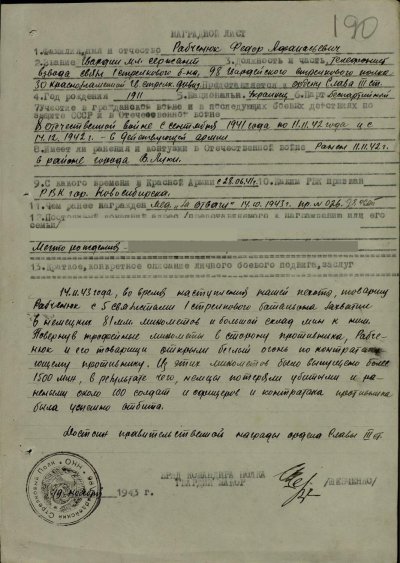 190
НАГРАДНОЙ ЛИСТ
1. Фамилия, имя и отчество Рабченюк Федор Афанасьевич
2. Звание Гвардии мл. сержант 3. Должность и часть Телефонист
взвода связи 1 стрелкового б-на, 98 Гвардейского стрелкового полка
30 краснознаменной гв. стрелк. дивиз. Представляется к ордену Слава III ст.
4. Год рождения 1911 5. Национальн. Украинец 6. Парт. Беспартийный
7. Участие в гражданской войне и в последующих боевых действиях по
защите СССР и в Отечественной войне
В отечественной войне с сентября 1941 года по 11.11.42 года и с
12.1942 г. - в действующей армии
8. Имеет ли ранения и контузии в Отечественной войне Ранен 11.11.42 г.
в районе города В. Луки.
9. С какого времени в Красной Армии с 28.06.41 г. 10. Каким РВК призван
РВК гор. Новосибирска.
11. Чем ранее награжден мед. "За отвагу" 14.10.1943 г. пр. №
семьи
Место рождения
13. Краткое, конкретное описание личного боевого подвига, заслуг
14.11.43 года, во время наступления нашей пехоты, товарищ
Рабченюк с 5 связистами 1 стрелкового батальона захватил
6 немецких 81 мм. минометов и большой склад мин к ним.
Повернув трофейные минометы в сторону противника, Рабче-
нюк и его товарищи открыли беглый огонь по контратаку-
ющему противнику. Из этих минометов было выпущено более
1500 мин, в результате чего, немцы потеряли убитыми и ра-
неными около 100 солдат и офицеров и контратака противника
была успешно отбита.
Достоин правительственной награды ордена Слава III ст.
ВРИД КОМАНДИРА ПОЛКА
ГВАРДИИ МАЙОР
/ШЕВЧЕНКО/
19 ноября 1943 г.